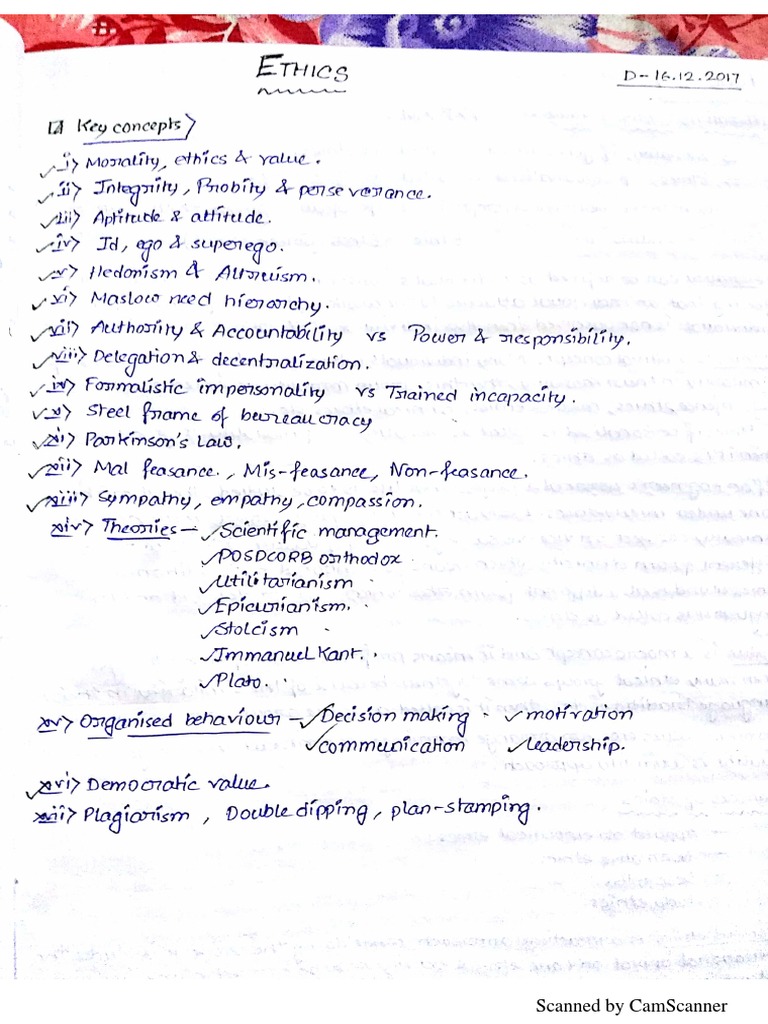 ETHICS
D-16.12.2017
Key concepts>
✓ i> Morality, ethics & value.
✓ ii> Integrity, Probity & perseverance.
✓ iii> Aptitude & attitude.
✓ iv> Id, ego & superego.
✓ v> Hedonism & Altruism.
✓ vi> Maslow need hierarchy.
✓ vii> Authority & Accountability vs Power & responsibility.
✓ viii> Delegation & decentralization.
✓ ix> Formalistic impersonality vs Trained incapacity.
✓ x> Steel frame of bureaucracy
✓ xi> Parkinson's Law.
✓ xii> Mal feasance., Mis-feasance, Non-feasance.
✓ xiii> Sympathy, empathy, compassion.
xiv> Theories – ✓ Scientific management.
✓ POSDCORB orthodox
✓ Utilitarianism
✓ Epicurianism.
✓ Stoicism
✓ Immanuel Kant.
✓ Plato.
xv> Organised behaviour – ✓ Decision making ✓ motivation
✓ communication ✓ leadership.
✓ xvi> Democratic value.
xvii> Plagiarism, Double dipping, plan-stamping.
Scanned by CamScanner